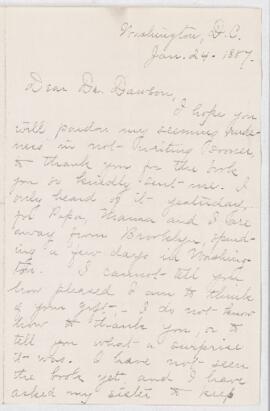 Washington, D.C.
Jan. 24. 1887.
Dear Dr. Dawson,
I hope you
will pardon my seeming rude-
ness in not writing sooner,
to thank you for the book
you so kindly sent me. I
only heard of it yesterday,
for Papa, Mama and I are
away from Brooklyn, spend-
ing a few days in Washing-
ton. I cannot tell you
how pleased I am to think
of your gift; - I do not know
how to thank you, or to
tell you what a surprise
it was. I have not seen
the book yet, and I have
asked my sister to keep